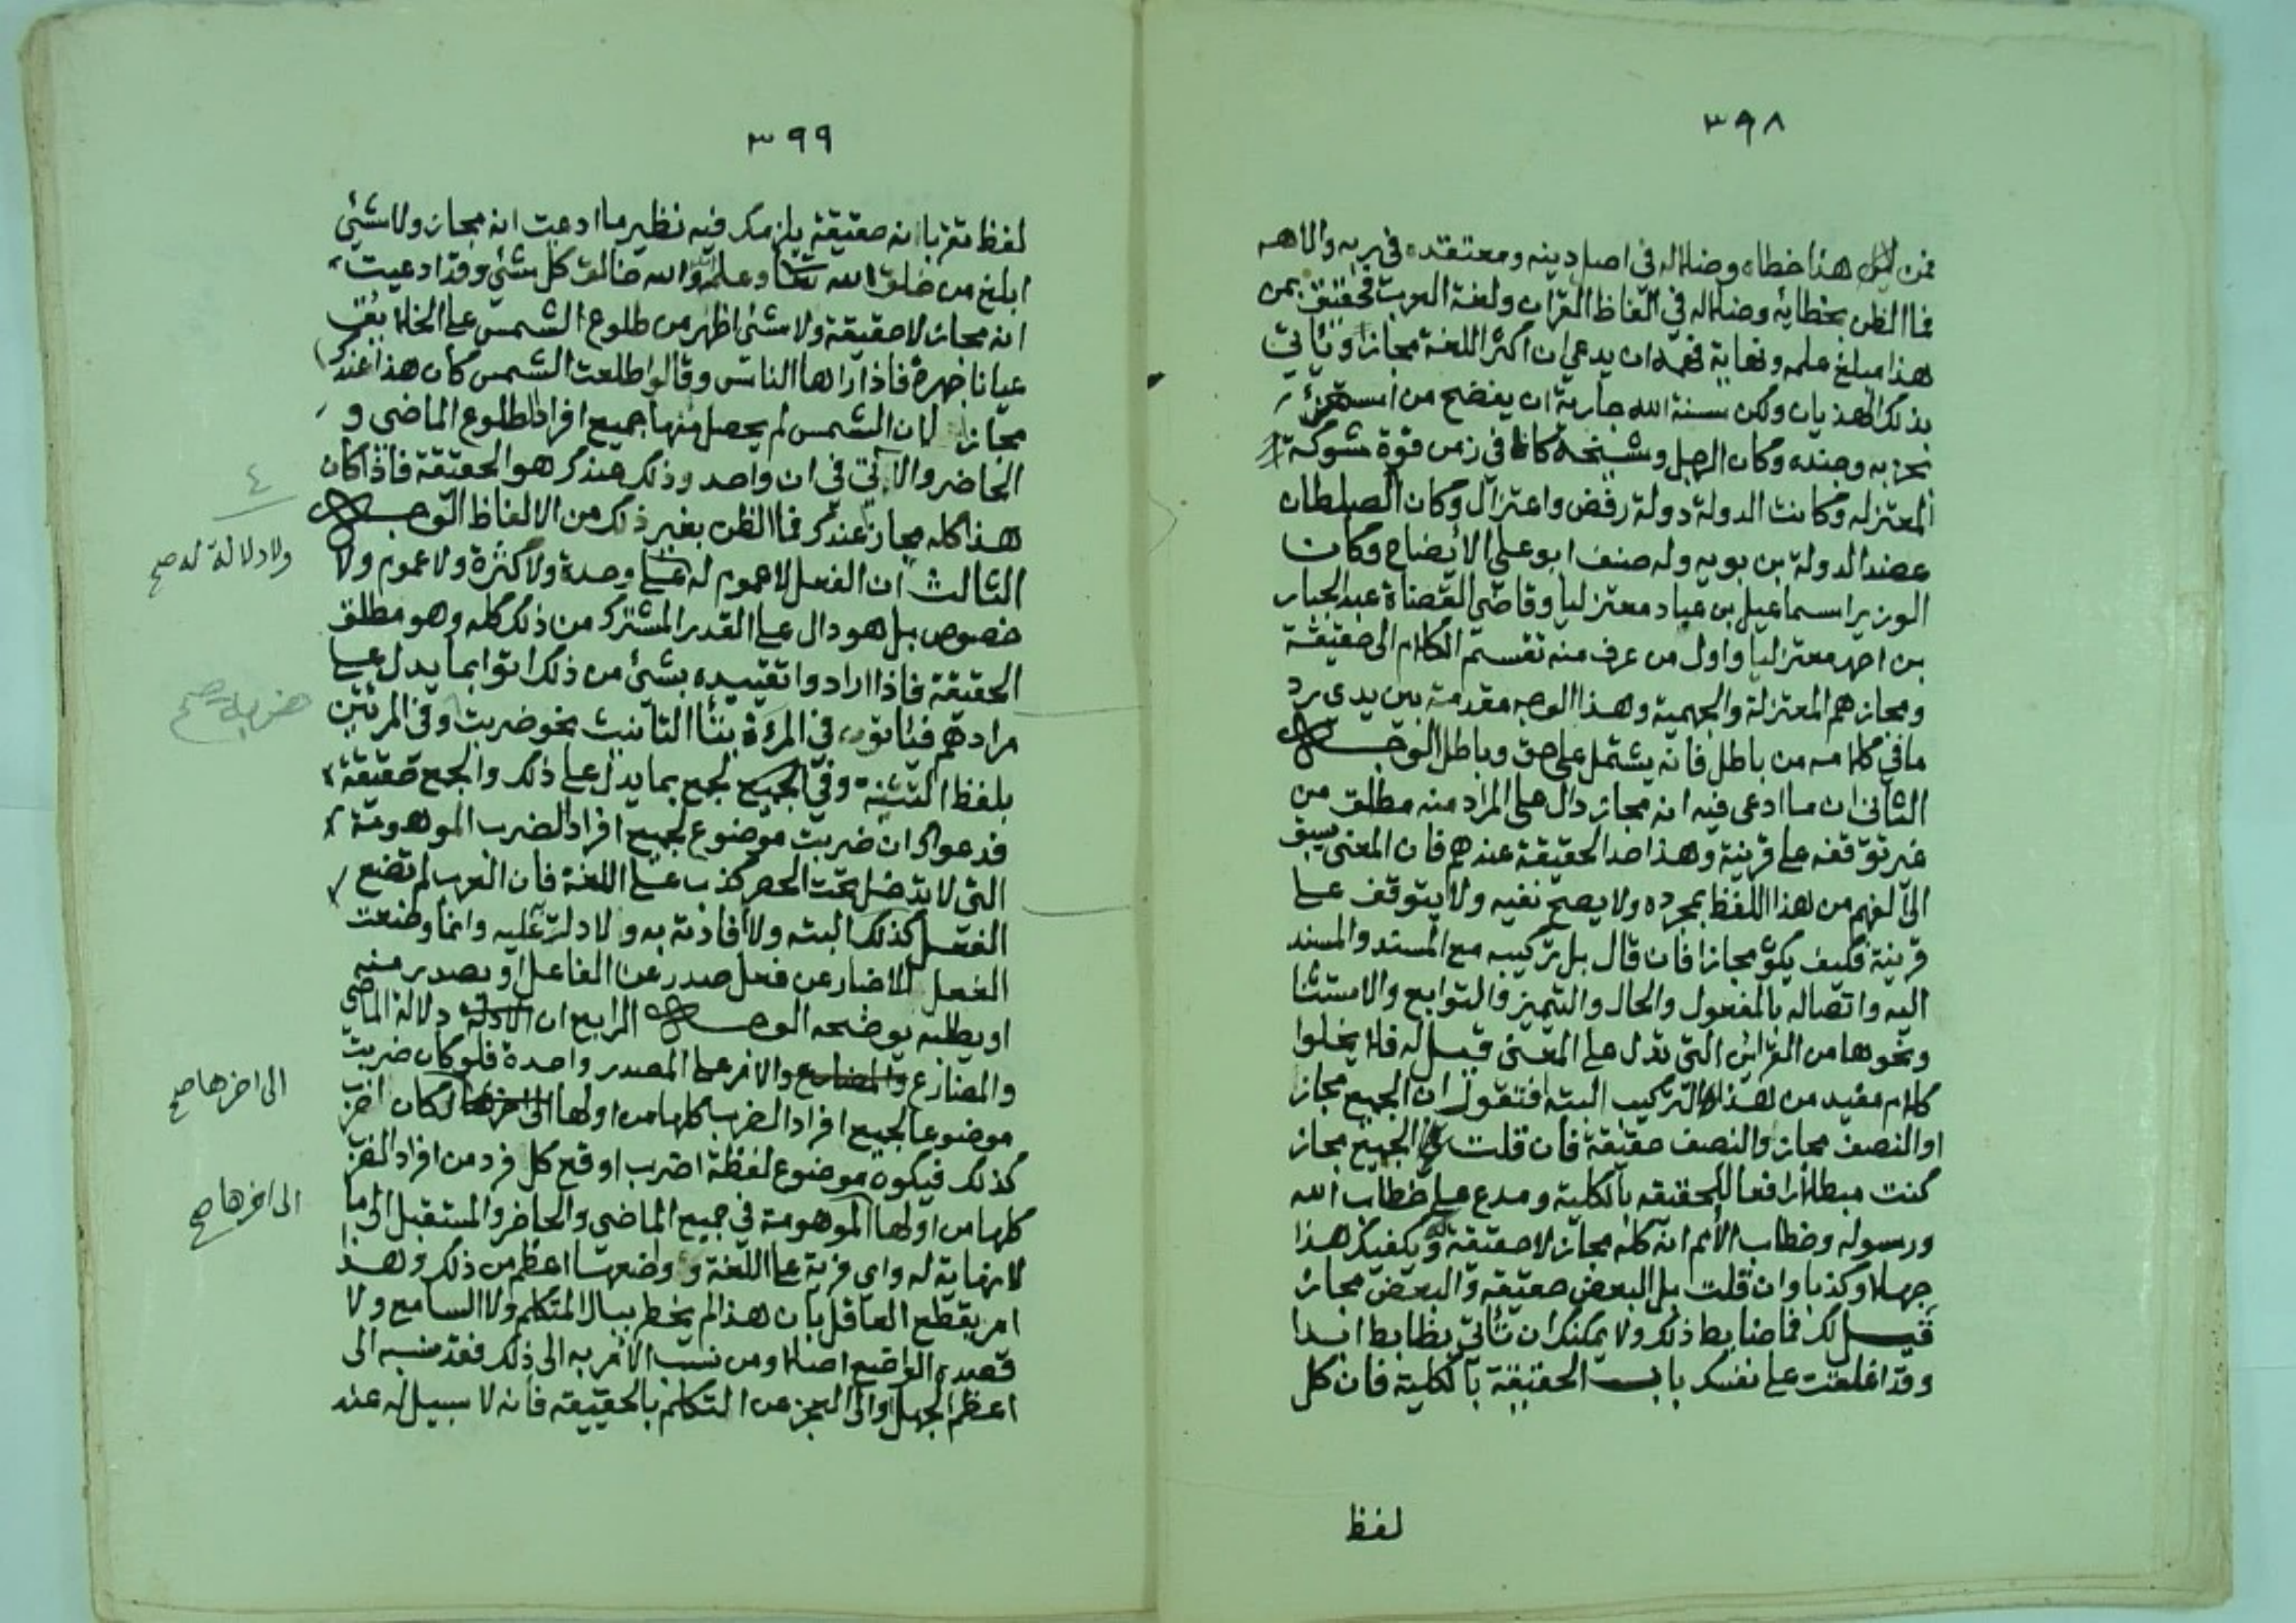 ٣٩٨
فمن هذا خطاه وضلاله في اصل دينه ومعتقده في ربه والاهه
فما الظن بخطائه وضلاله في الفاظ القران ولغة العرب فحقيق بمن
هذا مبلغ علمه ونهاية فهمه ان يدعي ان اكثر اللغة مجازا وياتي
بذلك الهذيان ولكن سنة الله جارية ان يفضح من استهزئ
بحزبه وجنده وكان الرجل وشيخه كانا في زمن قوة شوكة
المعتزله وكانت الدولة دولة رفض واعتزال وكان الصلطان
عضد الدولة بن بويه وله صنف ابو علي الايضاح وكان
الوزير اسماعيل بن عباد معتزليا وقاضي القضاة عبد الجبار
بن احمد معتزليا واول من عرف منه تقسيم الكلام الى حقيقة
ومجاز هم المعتزلة والجهمية وهذا الوجه مقدمة بين يدي رد
ما في كلامه من باطل فانه يشتمل على حق وباطل الوجه
الثاني ان ما ادعى فيه انه مجاز دال على المراد منه مطلق من
غير توقفه على قرينة وهذا حد الحقيقة عندهم فان المعنى يسبق
الى الفهم من هذا اللفظ بمجرده ولا يصح نفيه ولا يتوقف على
قرينة فكيف يكون مجازا فان قال بل تركيبه مع المسند والمسند
اليه واتصاله بالمفعول والحال والتميز والتوابع والاستثنا
ونحوها من القرائن التي تدل على المعنى قيل له فلا يخلوا
كلام مفيد من هذا التركيب البته افتقول ان الجميع مجاز
او النصف مجاز والنصف حقيقة فان قلت الجميع مجاز
كنت مبطلا رافعا للحقيقه بالكلية ومدع على خطاب الله
ورسوله وخطاب الامم انه كله مجاز لا حقيقة له ويكفيك هذا
جهلا وكذبا وان قلت بل البعض حقيقه والبعض مجاز
قيل لك فما ضابط ذلك ولا يمكنك ان تاتي بظابط ابدا
وقد اغلقت على نفسك باب الحقيقة بالكلية فان كل
لفظ
٣٩٩
لفظ تقر بانه حقيقة يلزمك فيه نظير ما ادعيت انه مجاز ولا شئ
ابلغ من خلق الله تعا وعلم الله والله خالق كل شئ وقد ادعيت
انه مجاز لا حقيقة ولا شئ اظهر من طلوع الشمس على الخلايق
عيانا جهرة فاذا راها الناس وقالوا طلعت الشمس كان هذا عندك
مجازا لان الشمس لم يحصل منها جميع افراد الطلوع الماضي و
الحاضر والاتي في ان واحد وذلك عندك هو الحقيقة فاذا كان
هذا كله مجاز عندك فما الظن بغير ذلك من الالفاظ الوجه
الثالث ان الفعل لا عموم له على وحدة ولا كثرة ولا عموم ولا
ولا دلالة له صح
خصوص بل هو دال على القدر المشترك من ذلك كله وهو مطلق
الحقيقة فاذا ارادوا تقييده بشئ من ذلك اتوا بما يدل على
مرادهم فياتون في المرة بتا التانيث نحو ضربت وفي المرتين
بلفظ التثنيه وفي الجمع بما يدل على ذلك والجمع حقيقة
فدعواك ان ضربت موضوع لجميع افراد الضرب الموهومة
التي لا تدخل تحت الحصر كذب على اللغة فان العرب لم تضع
الفعل كذلك البته ولا افادته به ولا دلت عليه وانما وضعت
الفعل للاخبار عن فعل صدر عن الفاعل او يصدر منه
او يطلبه يوضحه الوجه الرابع ان الادلة دلالة الماضي
والمضارع والمضارع والامر على المصدر واحدة فلو كان ضربت
موضوعا لجميع افراد الضرب كلها من اولها الى اخرها لكان اضرب
الى اخرها صح
كذلك فيكون موضوع لفظة اضرب اوقع كل فرد من افراد الضرب
كلها من اولها الموهومة في جميع الماضي والحاضر والمستقبل الى ما
الى اخرها صح
لا نهاية له واي فرية على اللغة وواضعها اعظم من ذلك وهذا
امر يقطع العاقل بان هذا لم يخطر ببال المتكلم ولا السامع ولا
قصده الواضع اصلا ومن نسب الامر به الى ذلك فقد نسبه الى
اعظم الجهل والى العجز عن التكلم بالحقيقه فانه لا سبيل له عند